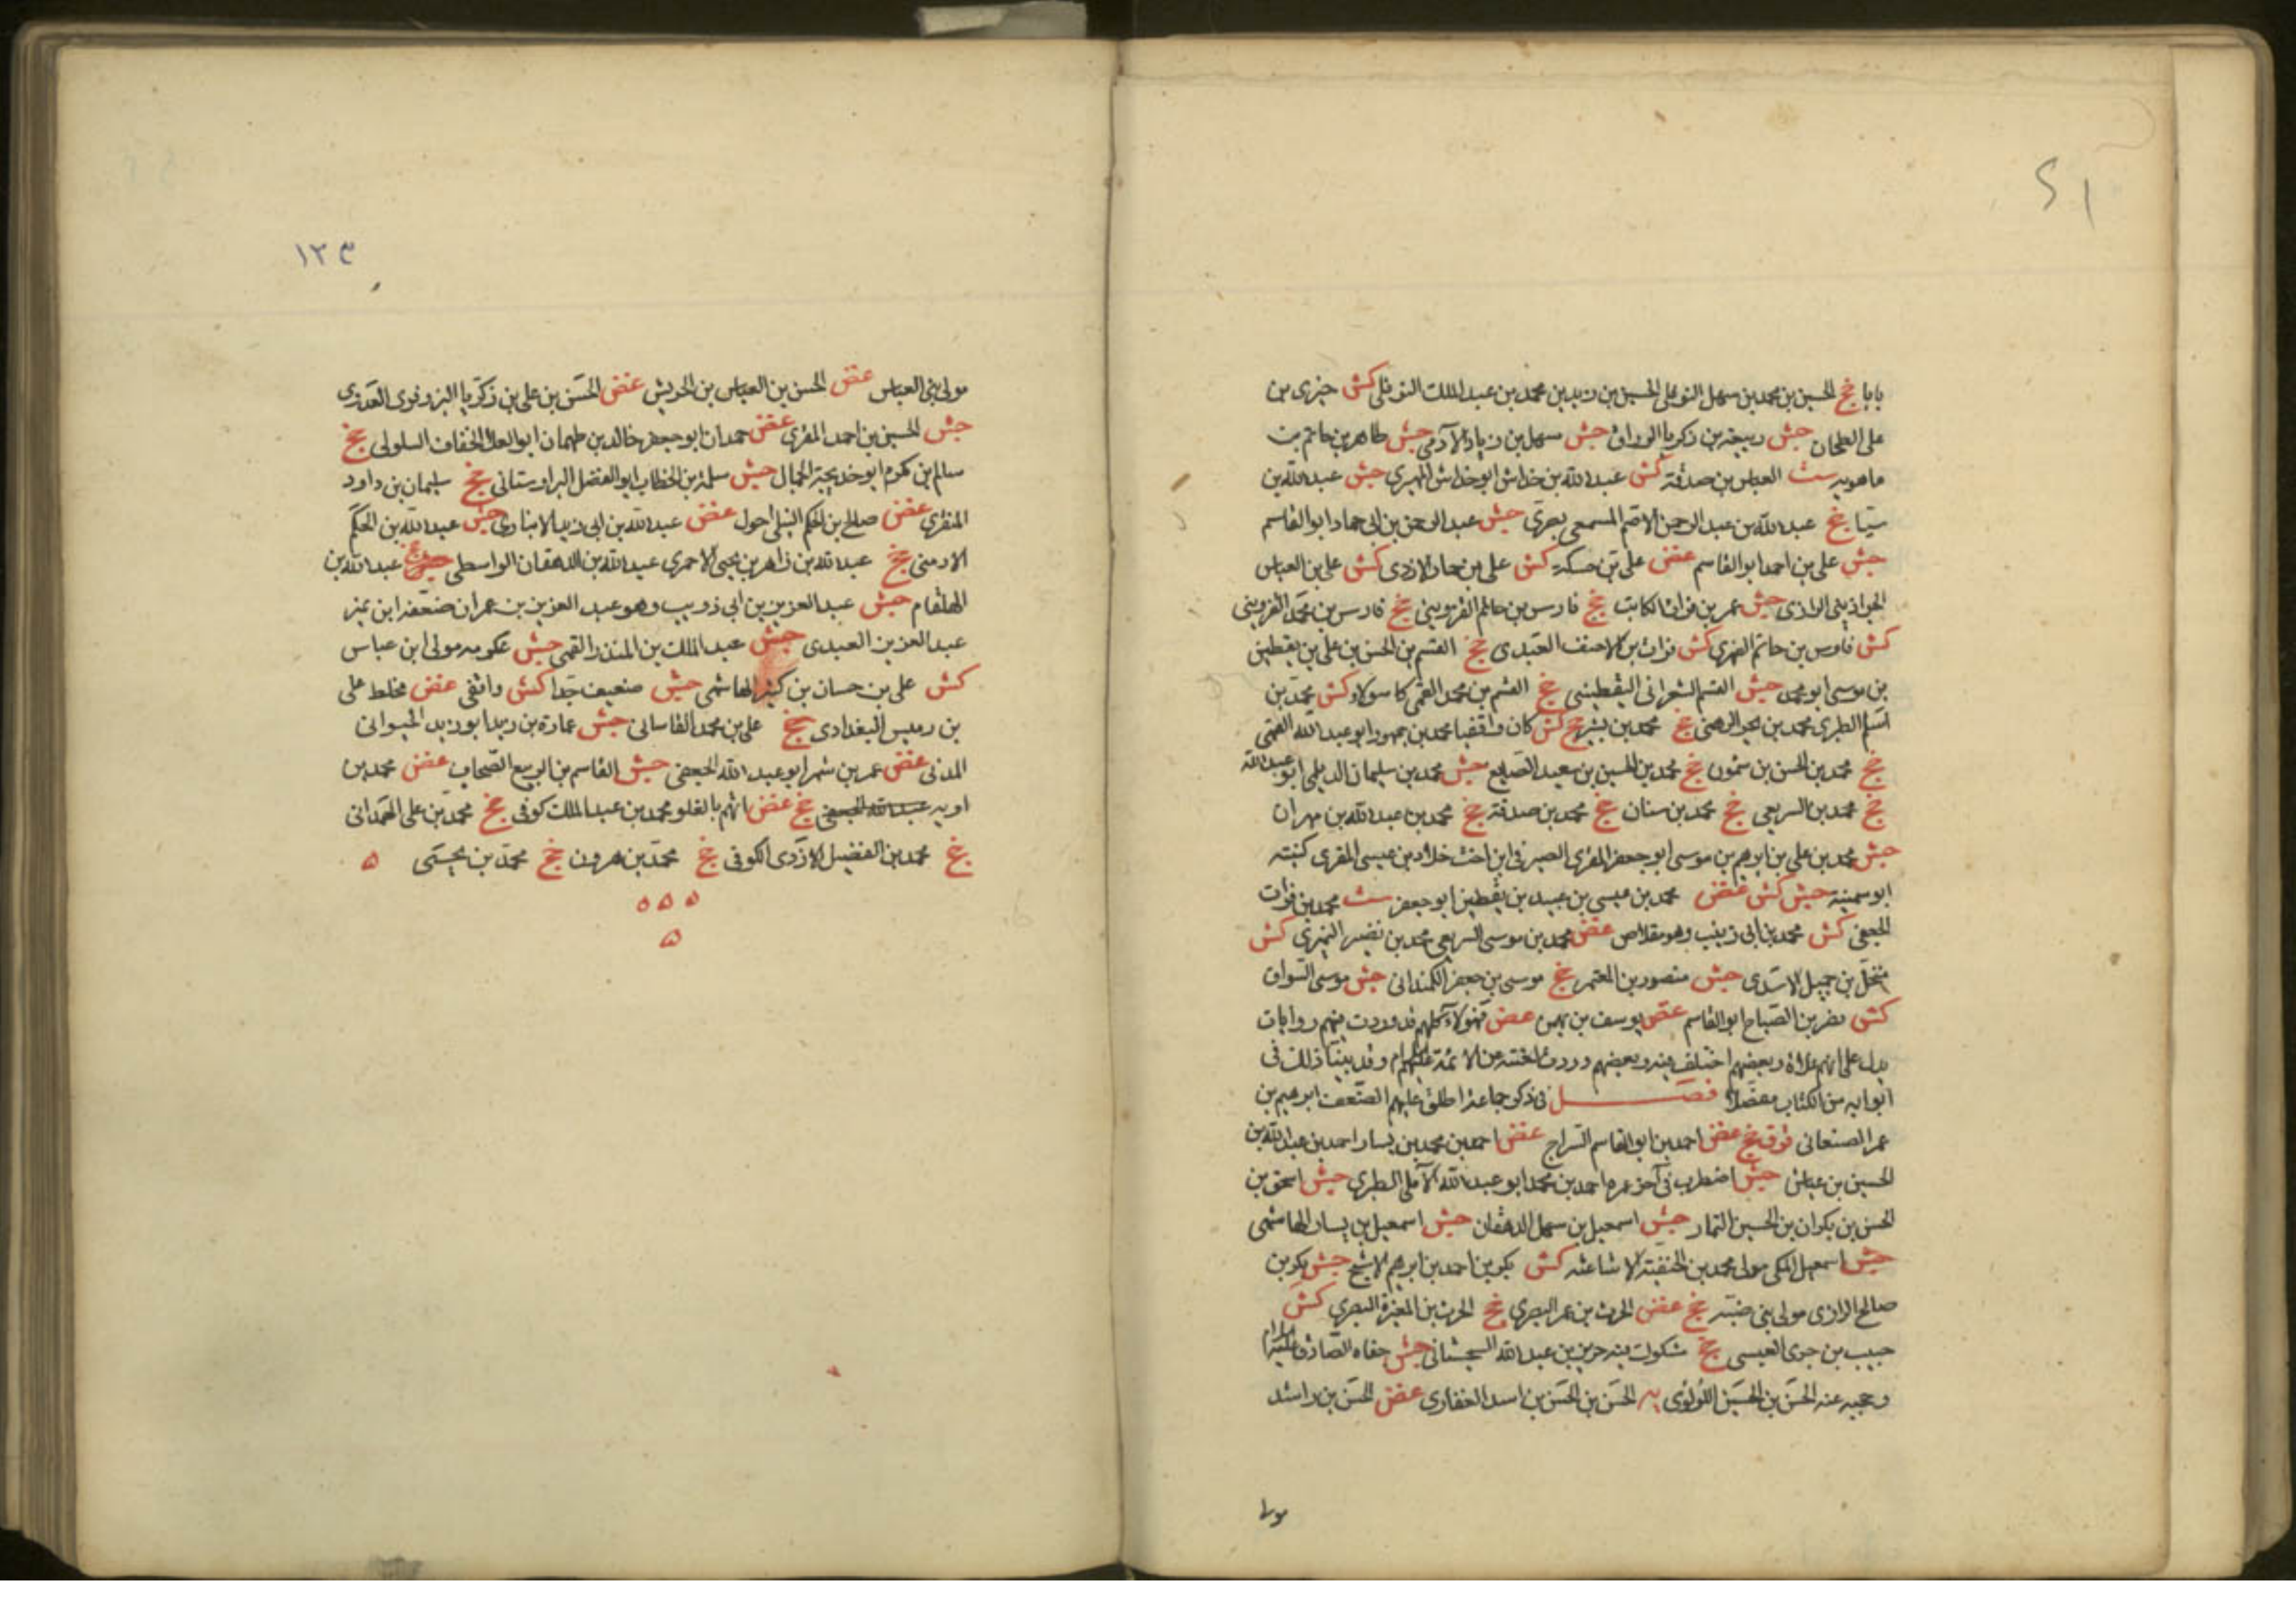 بابا خ الحسين بن محمد بن سهل النوفلي الحسين بن يزيد بن محمد بن عبد الملك النوفلي كش خيري بن
على الطحان جش ربيعة بن زكريا الوراق جش سهل بن زياد الآدمى جش طاهر بن حاتم بن
ماهويه ست العباس بن صدقة كش عبد الله بن خداش ابو خداش المهري جش عبد الله بن
عبد الله بن عبد الرحمن الاصم المسمعى بصرى جش عبد الرحمن بن ابى حماد ابو القاسم
جش على بن احمد ابو القاسم عض على بن حسكه كش على بن حماد الازدى كش على بن العباس
الجراذينى الرازى جش عمر بن فرات الكاتب جخ فارس بن حاتم القزوينى جخ فارس بن محمد القزوينى
كش فارس بن حاتم الفهرى كش فرات بن الاحنف العبدى جخ القسم بن الحسن بن على بن يقطين
بن موسى ابو محمد جش القسم الشعرانى اليقطينى جخ القسم بن محمد القمى كاسولا كش محمد بن
اسلم الطبرى محمد بن بحر الرهنى جخ محمد بن بشير جخ كش كان واقفيا محمد بن جمهور ابو عبد الله القمى
جخ محمد بن الحسن بن شمون جخ محمد بن الحسين بن سعيد الصايغ جش محمد بن سليمان الديلمى ابو عبد الله
جخ محمد بن السريعى جخ محمد بن سنان جخ محمد بن صدقة جخ محمد بن عبد الله بن مهران
جش محمد بن على بن ابرهيم بن موسى ابو جعفر المقرى الصيرفى ابن اخت خلاد بن عيسى المقرى كنيته
ابو سمينة جش كش عض محمد بن عيسى بن عبيد بن يقطين ابو جعفر ست محمد بن فرات
الجعفى كش محمد بن ابى زينب وهو مقلاص عض محمد بن موسى السريعى محمد بن نصير النميرى كش
منخل بن جميل الاسدى جش منصور بن المعتمر جخ موسى بن جعفر الكمندانى جش موسى السواق
كش نصر بن الصباح ابو القاسم عض يوسف بن بهمن عض فهؤلاء كلهم قد وردت فيهم روايات
يدل على انهم غلاة وبعضهم اختلف فيه وبعضهم وردت لعنته عن الائمة عليهم السلام وقد بينا ذلك فى
ابوابه من الكتاب مفصلا فصل فى ذكر جماعة اطلق عليهم الضعف ابرهيم بن
عمر الصنعانى فوق جخ عض احمد بن ابو القاسم السراج عض احمد بن محمد بن يسار احمد بن عبد الله بن
الحسين بن عياش جش اضطرب فى آخر عمره احمد بن محمد ابو عبد الله الآملى الطبرى جش اسحق بن
الحسن بن بكران بن الحسين التمار جش اسمعيل بن سهل الدهقان جش اسمعيل بن يسار الهاشمى
جش اسمعيل المكى مولى محمد بن الحنفية الاشاعثه كش بكر بن احمد بن ابرهيم الاشج جش بكر بن
صالح الرازى مولى بنى ضبة جخ عض الحرث بن عمر البصرى جخ الحرث بن المغيرة البصرى كش
حبيب بن جرى العبسى جخ شكوت فيه حريز بن عبد الله السجستانى جش جفاه الصادق عليه السلام
وحجبه عنه الحسن بن الحسين اللؤلؤى يه الحسن بن الحسن بن اسد الغفارى عض الحسن بن راشد
مولى
١٢٣
مولى بنى العباس عض الحسن بن العباس بن الحريش عض الحسن بن على بن زكريا البزوفرى العدوى
جش الحسين بن احمد المقرى عض حمدان ابو جعفر خالد بن طهمان ابو العلا الخفاف السلولى جخ
سالم بن مكرم ابو خديجة الجمال جش سلمة بن الخطاب ابو الفضل البراوستانى جخ سليمان بن داود
المنقرى عض صالح بن الحكم النيلى احول عض عبد الله بن ابى زيد الانبارى جش عبد الله بن الحكم
الارمنى جخ عبد الله بن زاهر بن يحيى الاحمرى عبد الله بن الدهقان الواسطى جخ عبد الله بن
الهلقام جش عبد العزيز بن ابى ذويب وهو عبد العزيز بن عمران ضعفه ابن نمير
عبد العزيز العبدى جش عبد الملك بن المنذر القمى جش عكرمه مولى ابن عباس
كش على بن حسان بن كثير الهاشمى جش ضعيف جدا كش واقفى عض مخلط على
بن رميس البغدادى جخ على بن محمد القاسانى جش عمارة بن زيد ابو زيد الخيوانى
المدنى عض عمر بن شمر ابو عبد الله الجعفى جش القاسم بن الربيع الصحاف عض محمد بن
اورمه جخ عض اتهم بالغلو محمد بن عبد الملك كوفى جخ محمد بن على الهمدانى
جخ محمد بن الفضيل الازدى الكوفى جخ محمد بن هرون جخ محمد بن يحيى